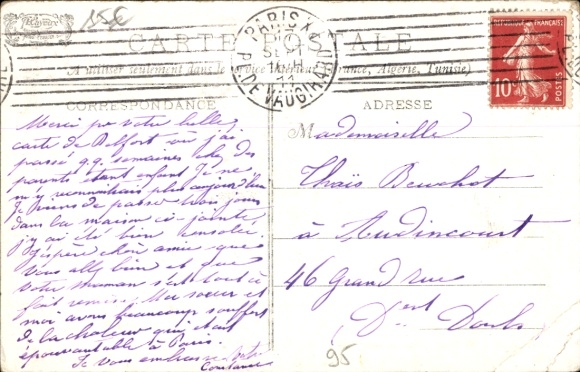 15€
CARTE POSTALE
A utiliser seulement dans le service intérieur (France, Algérie, Tunisie)
PARIS XV
PL. DE VAUGIRARD
RÉPUBLIQUE FRANÇAISE
10
POSTES
CORRESPONDANCE
ADRESSE
Merci pr votre belle
carte de Belfort où j'ai
passé q.q. semaines chez des
parents étant enfant Je ne
m'y reconnaîtrais plus aujourd'hui
Je viens de passer trois jours
dans la maison ci-jointe,
j'y ai été bien
J'espère chère amie que
vous allez bien et que
votre maman s'est tout à
fait remise; Ma soeur et
moi avons beaucoup souffert
de la chaleur qui était
épouvantable à Paris.
Je vous embrasse votre
Constance
Mademoiselle
Thaïs Beuchot
à Audincourt
46 Grand rue
Dert Doubs
95